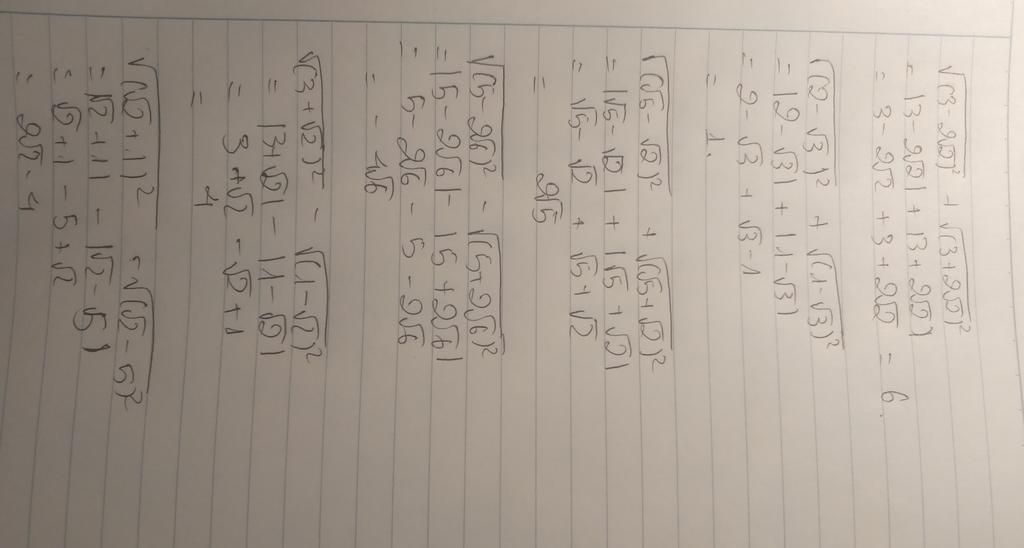 √(3-2√2)² + √(3+2√2)²
= |3-2√2| + |3+2√2|
= 3-2√2 + 3+2√2 = 6
√(2-√3)² + √(1-√3)²
= |2-√3| + |1-√3|
= 2-√3 + √3-1
= 1.
√(√5-√2)² + √(√5+√2)²
= |√5-√2| + |√5+√2|
= √5-√2 + √5+√2
= 2√5
√(5-2√6)² - √(5+2√6)²
= |5-2√6| - |5+2√6|
= 5-2√6 - 5-2√6
= -4√6
√(3+√2)² - √(1-√2)²
= |3+√2| - |1-√2|
= 3+√2 - √2+1
= 4
√(√2+1)² - √(√2-5)²
= |√2+1| - |√2-5|
= √2+1 - 5+√2
= 2√2-4